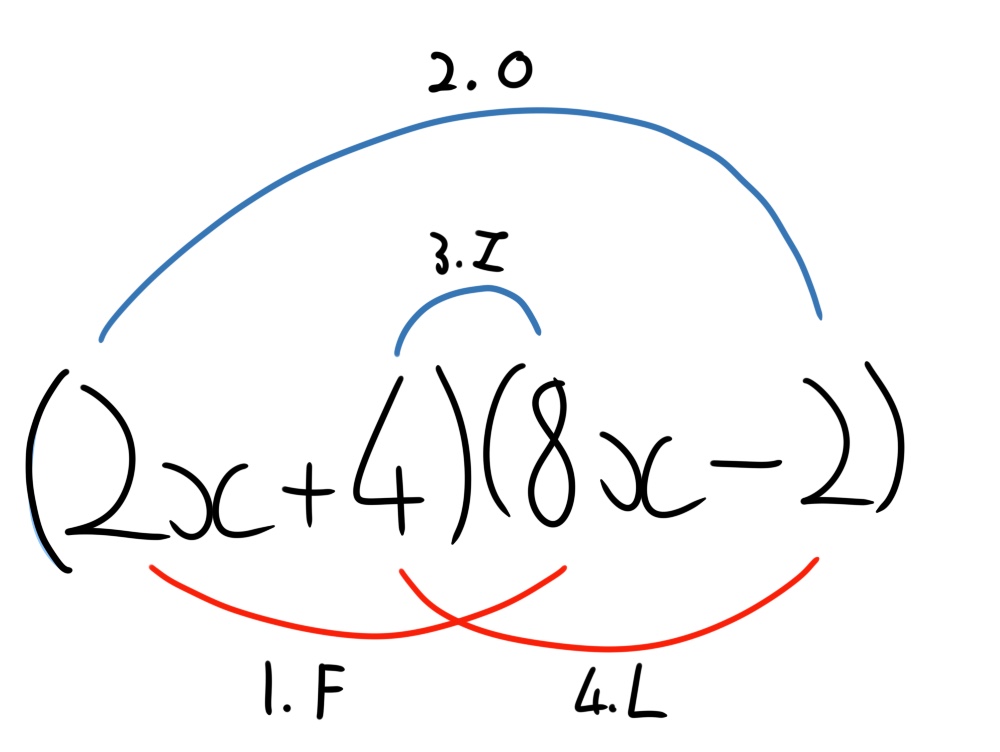 2. O
3. I
(2x+4)(8x-2)
1. F
4. L